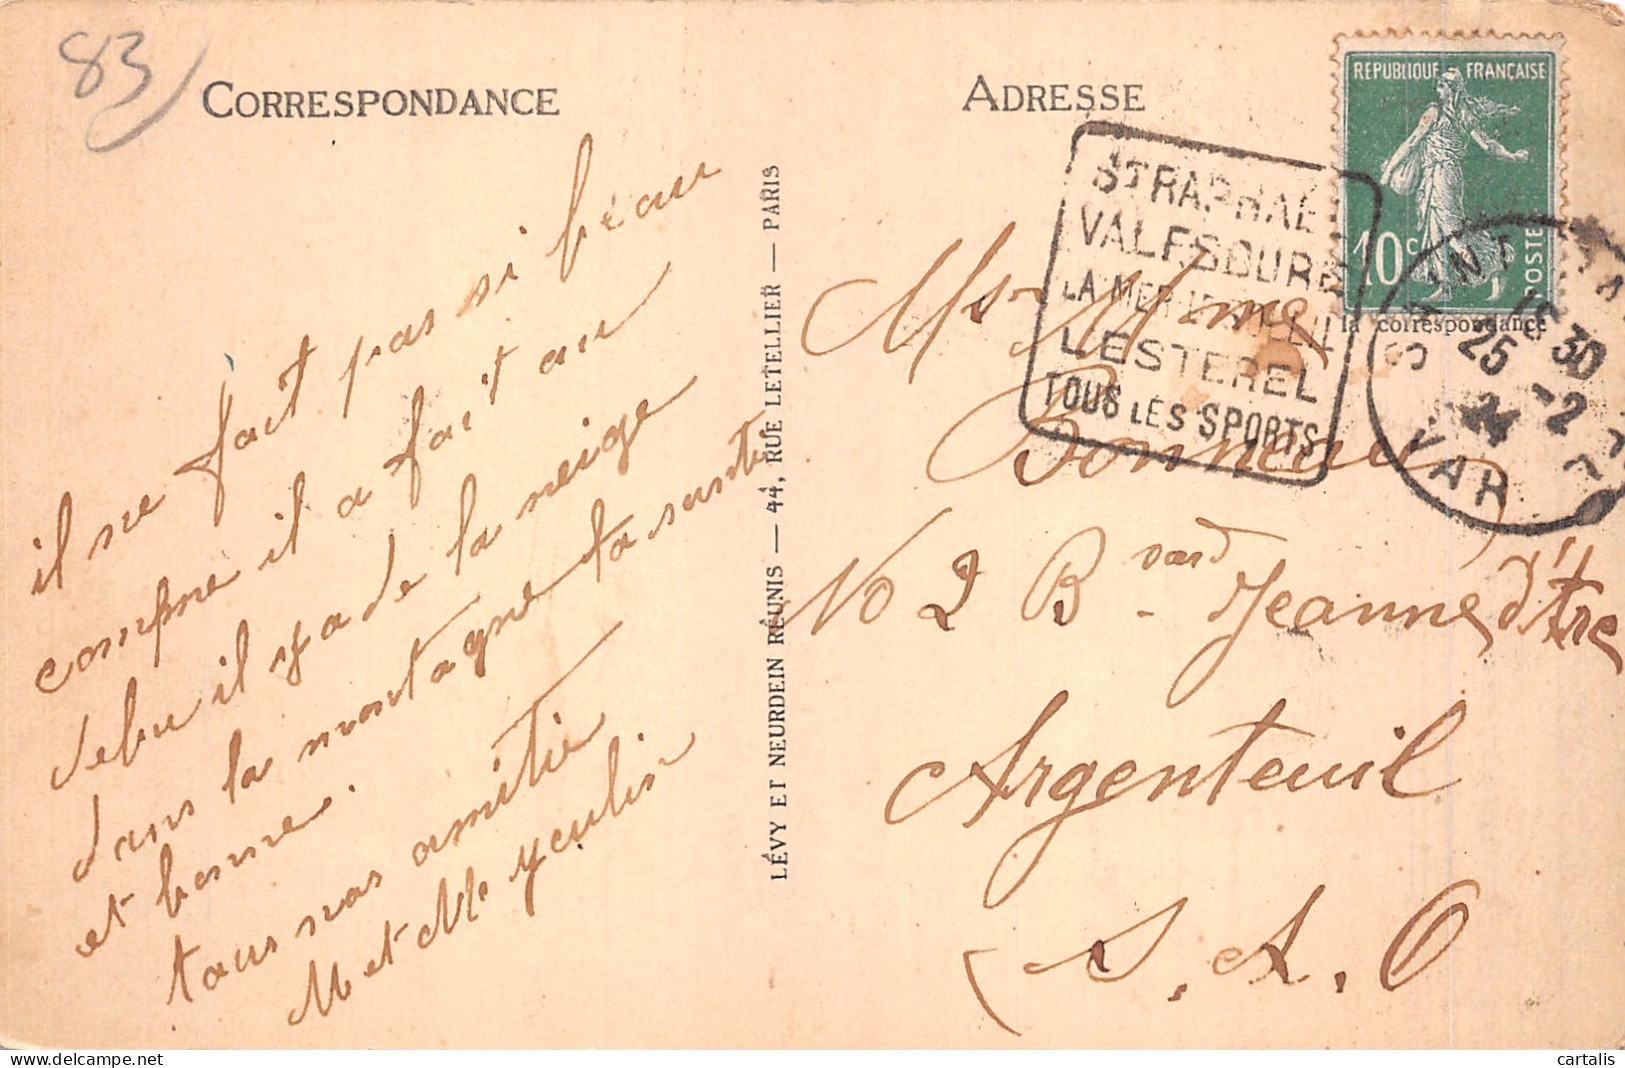 83
CORRESPONDANCE
il ne fait pas si beau
compme il a fait au
debu il y a de la neige
dans la montagne ta santé
et bonne.
tous nos amitié
M et Me
ADRESSE
Mr Mme
Bonneau
No 2 Bvard Jeanne d'tre
Argenteuil
S. A. O
LÉVY ET NEURDEIN RÉUNIS — 44, RUE LETELLIER — PARIS
ST RAPHAEL
VALESCURE
LA MER LE SOLEIL
L'ESTEREL
TOUS LES SPORTS
REPUBLIQUE FRANÇAISE
10c
POSTES
la correspondance
SAINT
18 30
25 -2
24
VAR
cartalis